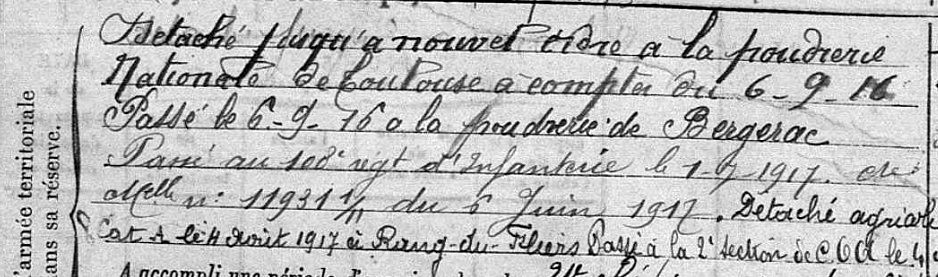 Détaché jusqu'a nouvel ordre à la poudrerie
Nationale de Toulouse à compter du 6-9-16
Passé le 6-9-16 a la poudrerie de Bergerac
Passé au 108e régt d'Infanterie le 1-7-1917.
n: 11931 1/11 du 6 Juin 1917. Détaché agricole
Cat A le 4 Août 1917 à Rang-du-Fliers Passé à la 2e section de COA le
A accompli une période
l'armée territoriale
dans sa réserve.